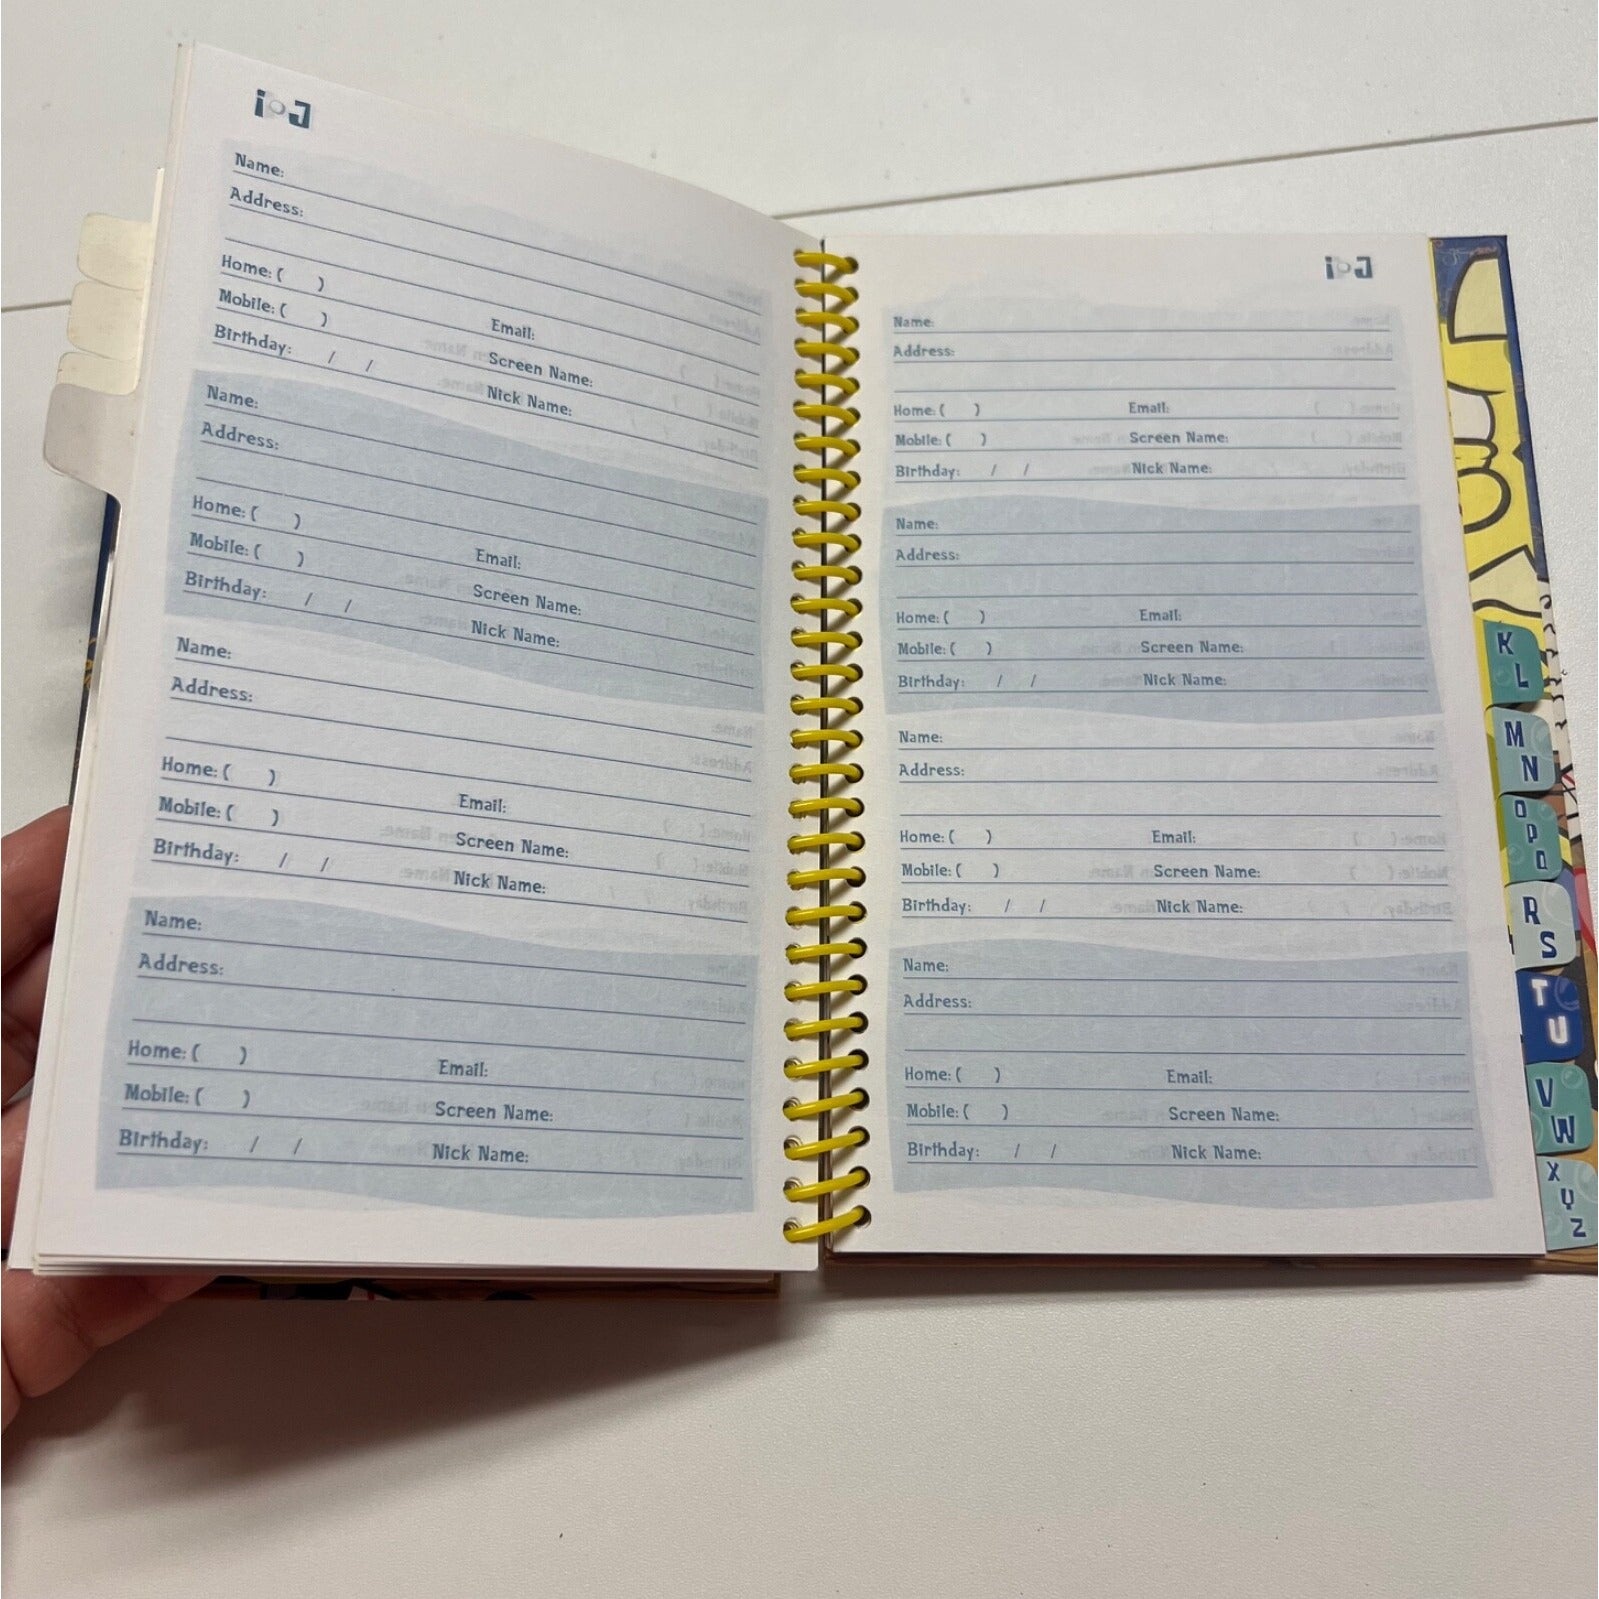 i J
Name:
Address:
Home: (    )
Email:
Mobile: (    )
Screen Name:
Birthday:    /    /
Nick Name:
Name:
Address:
Home: (    )
Email:
Mobile: (    )
Screen Name:
Birthday:    /    /
Nick Name:
Name:
Address:
Home: (    )
Email:
Mobile: (    )
Screen Name:
Birthday:    /    /
Nick Name:
Name:
Address:
Home: (    )
Email:
Mobile: (    )
Screen Name:
Birthday:    /    /
Nick Name:
i J
Name:
Address:
Home: (    ) Email:
Mobile: (    ) Screen Name:
Birthday:    /    / Nick Name:
Name:
Address:
Home: (    ) Email:
Mobile: (    ) Screen Name:
Birthday:    /    / Nick Name:
Name:
Address:
Home: (    ) Email:
Mobile: (    ) Screen Name:
Birthday:    /    / Nick Name:
Name:
Address:
Home: (    ) Email:
Mobile: (    ) Screen Name:
Birthday:    /    / Nick Name:
K L
M N
O P Q
R S
T U
V W
X Y Z